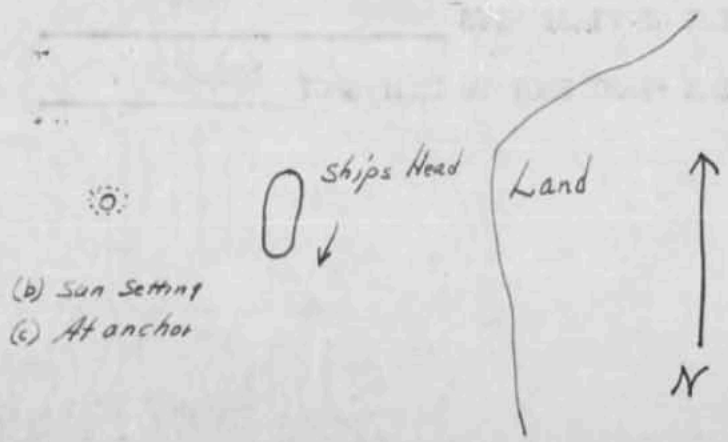 Ships Head
Land
(b) Sun Setting
(c) At anchor
N